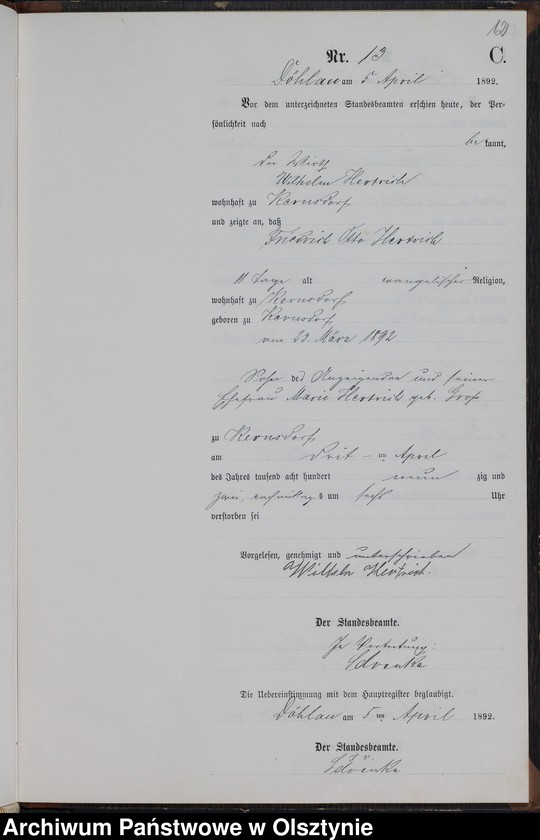 12
Nr. 13 C.
Döhlau am 5. April 1892.
Vor dem unterzeichneten Standesbeamten erschien heute, der Per-
sönlichkeit nach
bekannt,
der Wirth
Wilhelm Hertrich
wohnhaft zu Kernsdorf
und zeigte an, daß
Friedrich Otto Hertrich
11 Tage alt evangelischer Religion,
wohnhaft zu Kernsdorf
geboren zu Kernsdorf
am 23. März 1892
Sohn des Anzeigenden und seiner
Ehefrau Marie Hertrich geb.
zu Kernsdorf
am dritten April
des Jahres tausend acht hundert neunzig und
zwei, nachmittags um sechs Uhr
verstorben sei
Vorgelesen, genehmigt und unterschrieben
Wilhelm Hertrich.
Der Standesbeamte.
In Vertretung:
Die Uebereinstimmung mit dem Hauptregister beglaubigt.
Döhlau am 5ten April 1892.
Der Standesbeamte.
Archiwum Państwowe w Olsztynie